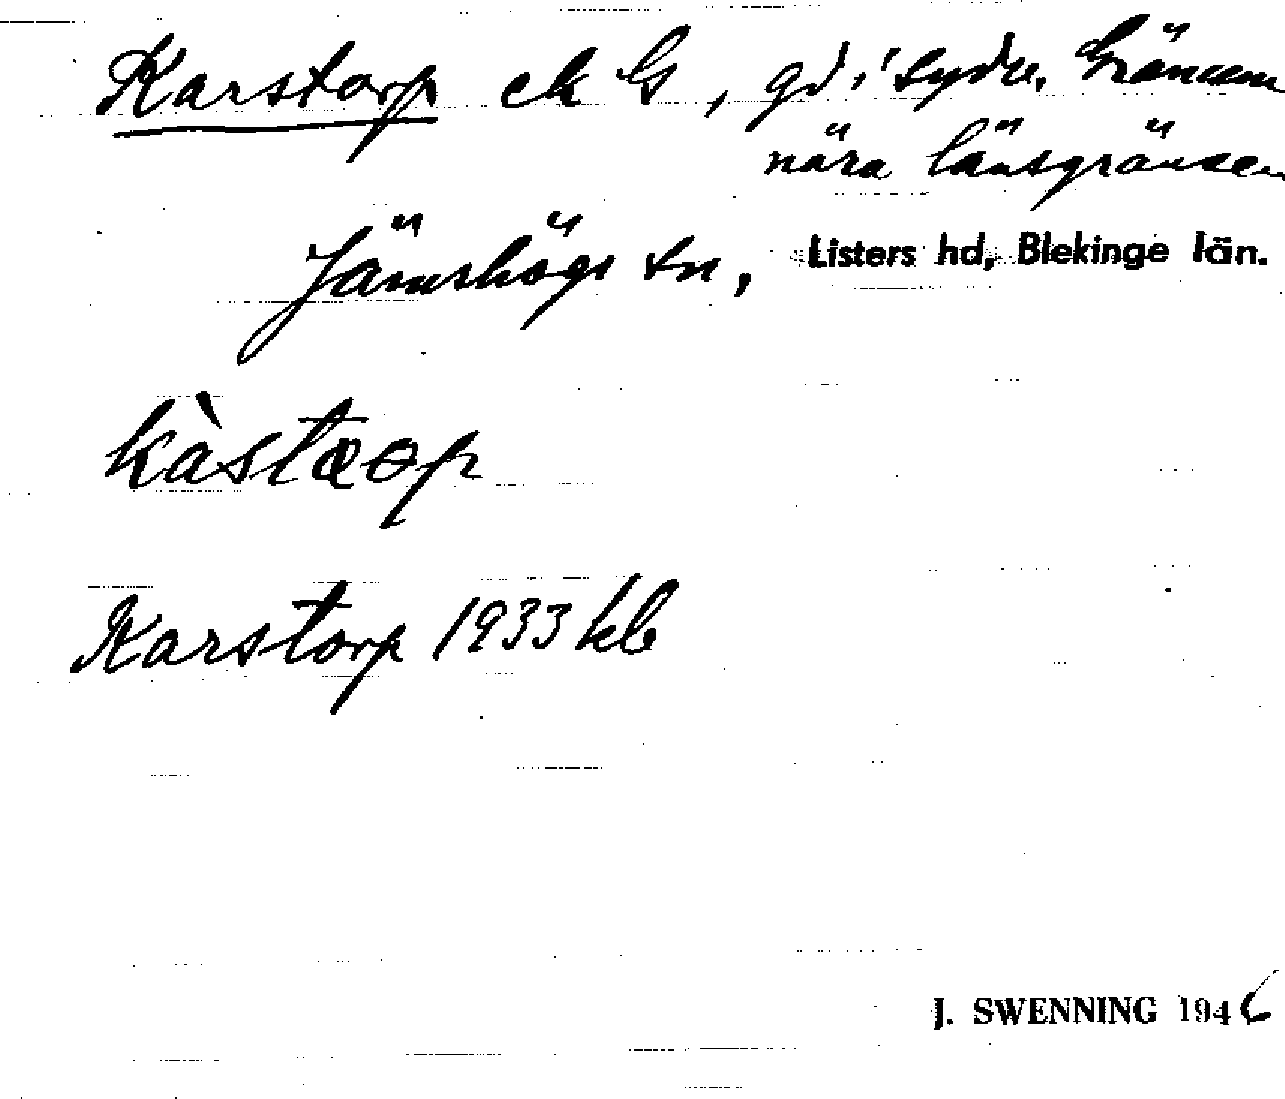 Karstorp ek G, gd i sydv. Grännum
nära länsgränsen
Jämshögs sn, Listers hd, Blekinge län.
kàstæop
Karstorp 1933 kb
J. SWENNING 1946